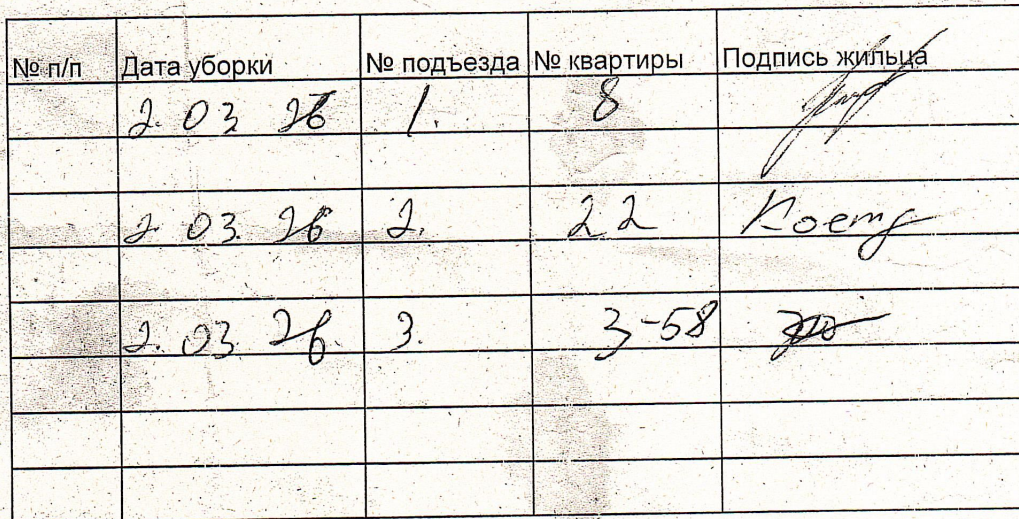 № п/п Дата уборки № подъезда № квартиры Подпись жильца
2. 03. 26 1. 8
2. 03. 26 2. 22
2. 03. 26. 3. 3-58